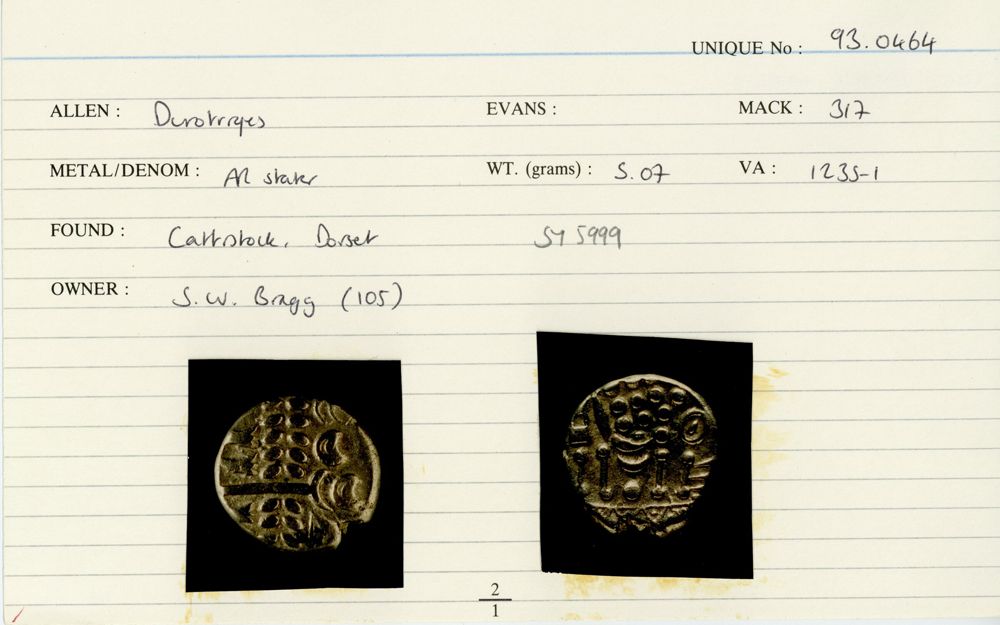 UNIQUE No : 93.0464
ALLEN : Durotriges EVANS : MACK : 317
METAL/DENOM : AR stater WT. (grams) : 5.07 VA : 1235-1
FOUND : Cattistock, Dorset SY 5999
OWNER : S.W. Bragg (105)
2
1